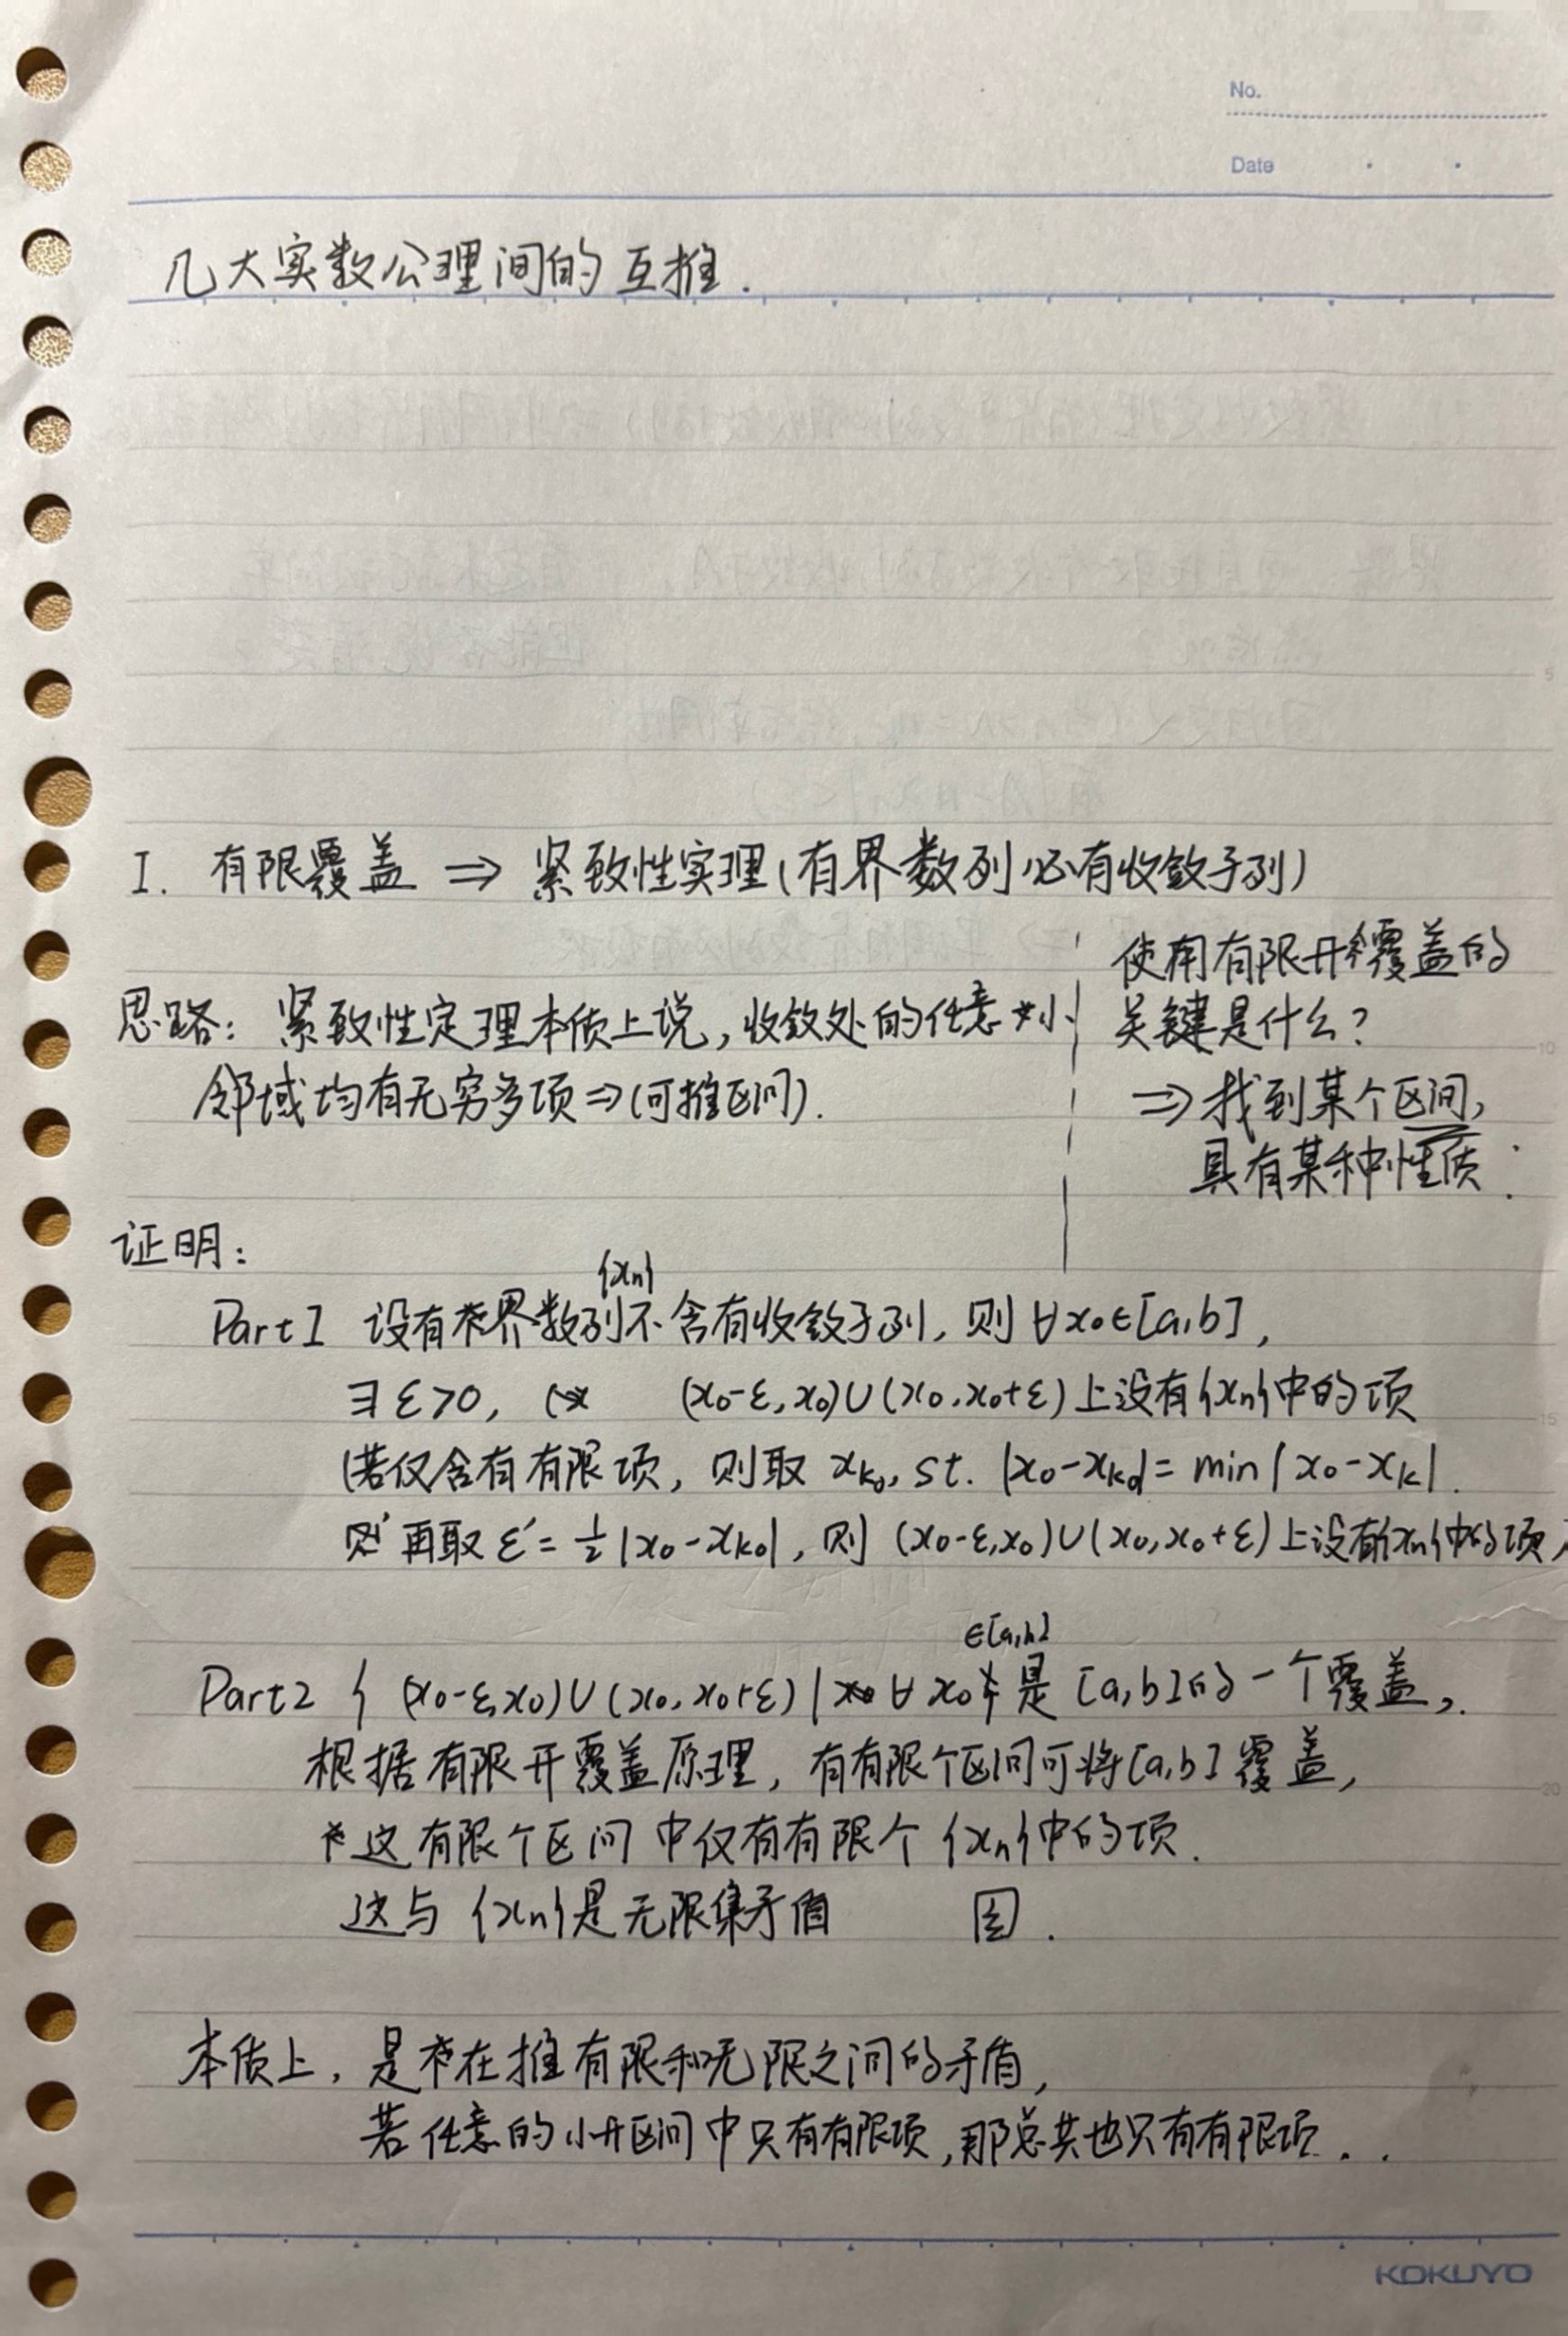 No.
Date
几大实数公理间的互推.
I. 有限覆盖 ⇒ 紧致性实理(有界数列必有收敛子列)
思路: 紧致性定理本质上说, 收敛处的任意小
邻域均有无穷多项⇒(可推区间).
使用有限开覆盖的
关键是什么?
⇒ 找到某个区间,
具有某种性质.
证明:
{xn}
Part1 设有界数列不含有收敛子列, 则 ∀x₀∈[a,b],
∃ε>0, (x₀-ε, x₀)∪(x₀, x₀+ε)上没有{xn}中的项
(若仅含有有限项, 则取 xk₀, st. |x₀-xk₀| = min|x₀-xk|.
则再取 ε' = ½|x₀-xk₀|, 则 (x₀-ε,x₀)∪(x₀,x₀+ε)上没有{xn}中的项)
∈[a,b]
Part2 { (x₀-ε,x₀)∪(x₀,x₀+ε) | ∀ x₀ } 是 [a,b]的一个覆盖,
根据有限开覆盖原理, 有有限个区间可将[a,b]覆盖,
这有限个区间中仅有有限个{xn}中的项.
这与{xn}是无限集矛盾 .
本质上, 是在推有限和无限之间的矛盾,
若任意的小开区间中只有有限项, 那总共也只有有限项. .
5
10
15
20
KOKUYO